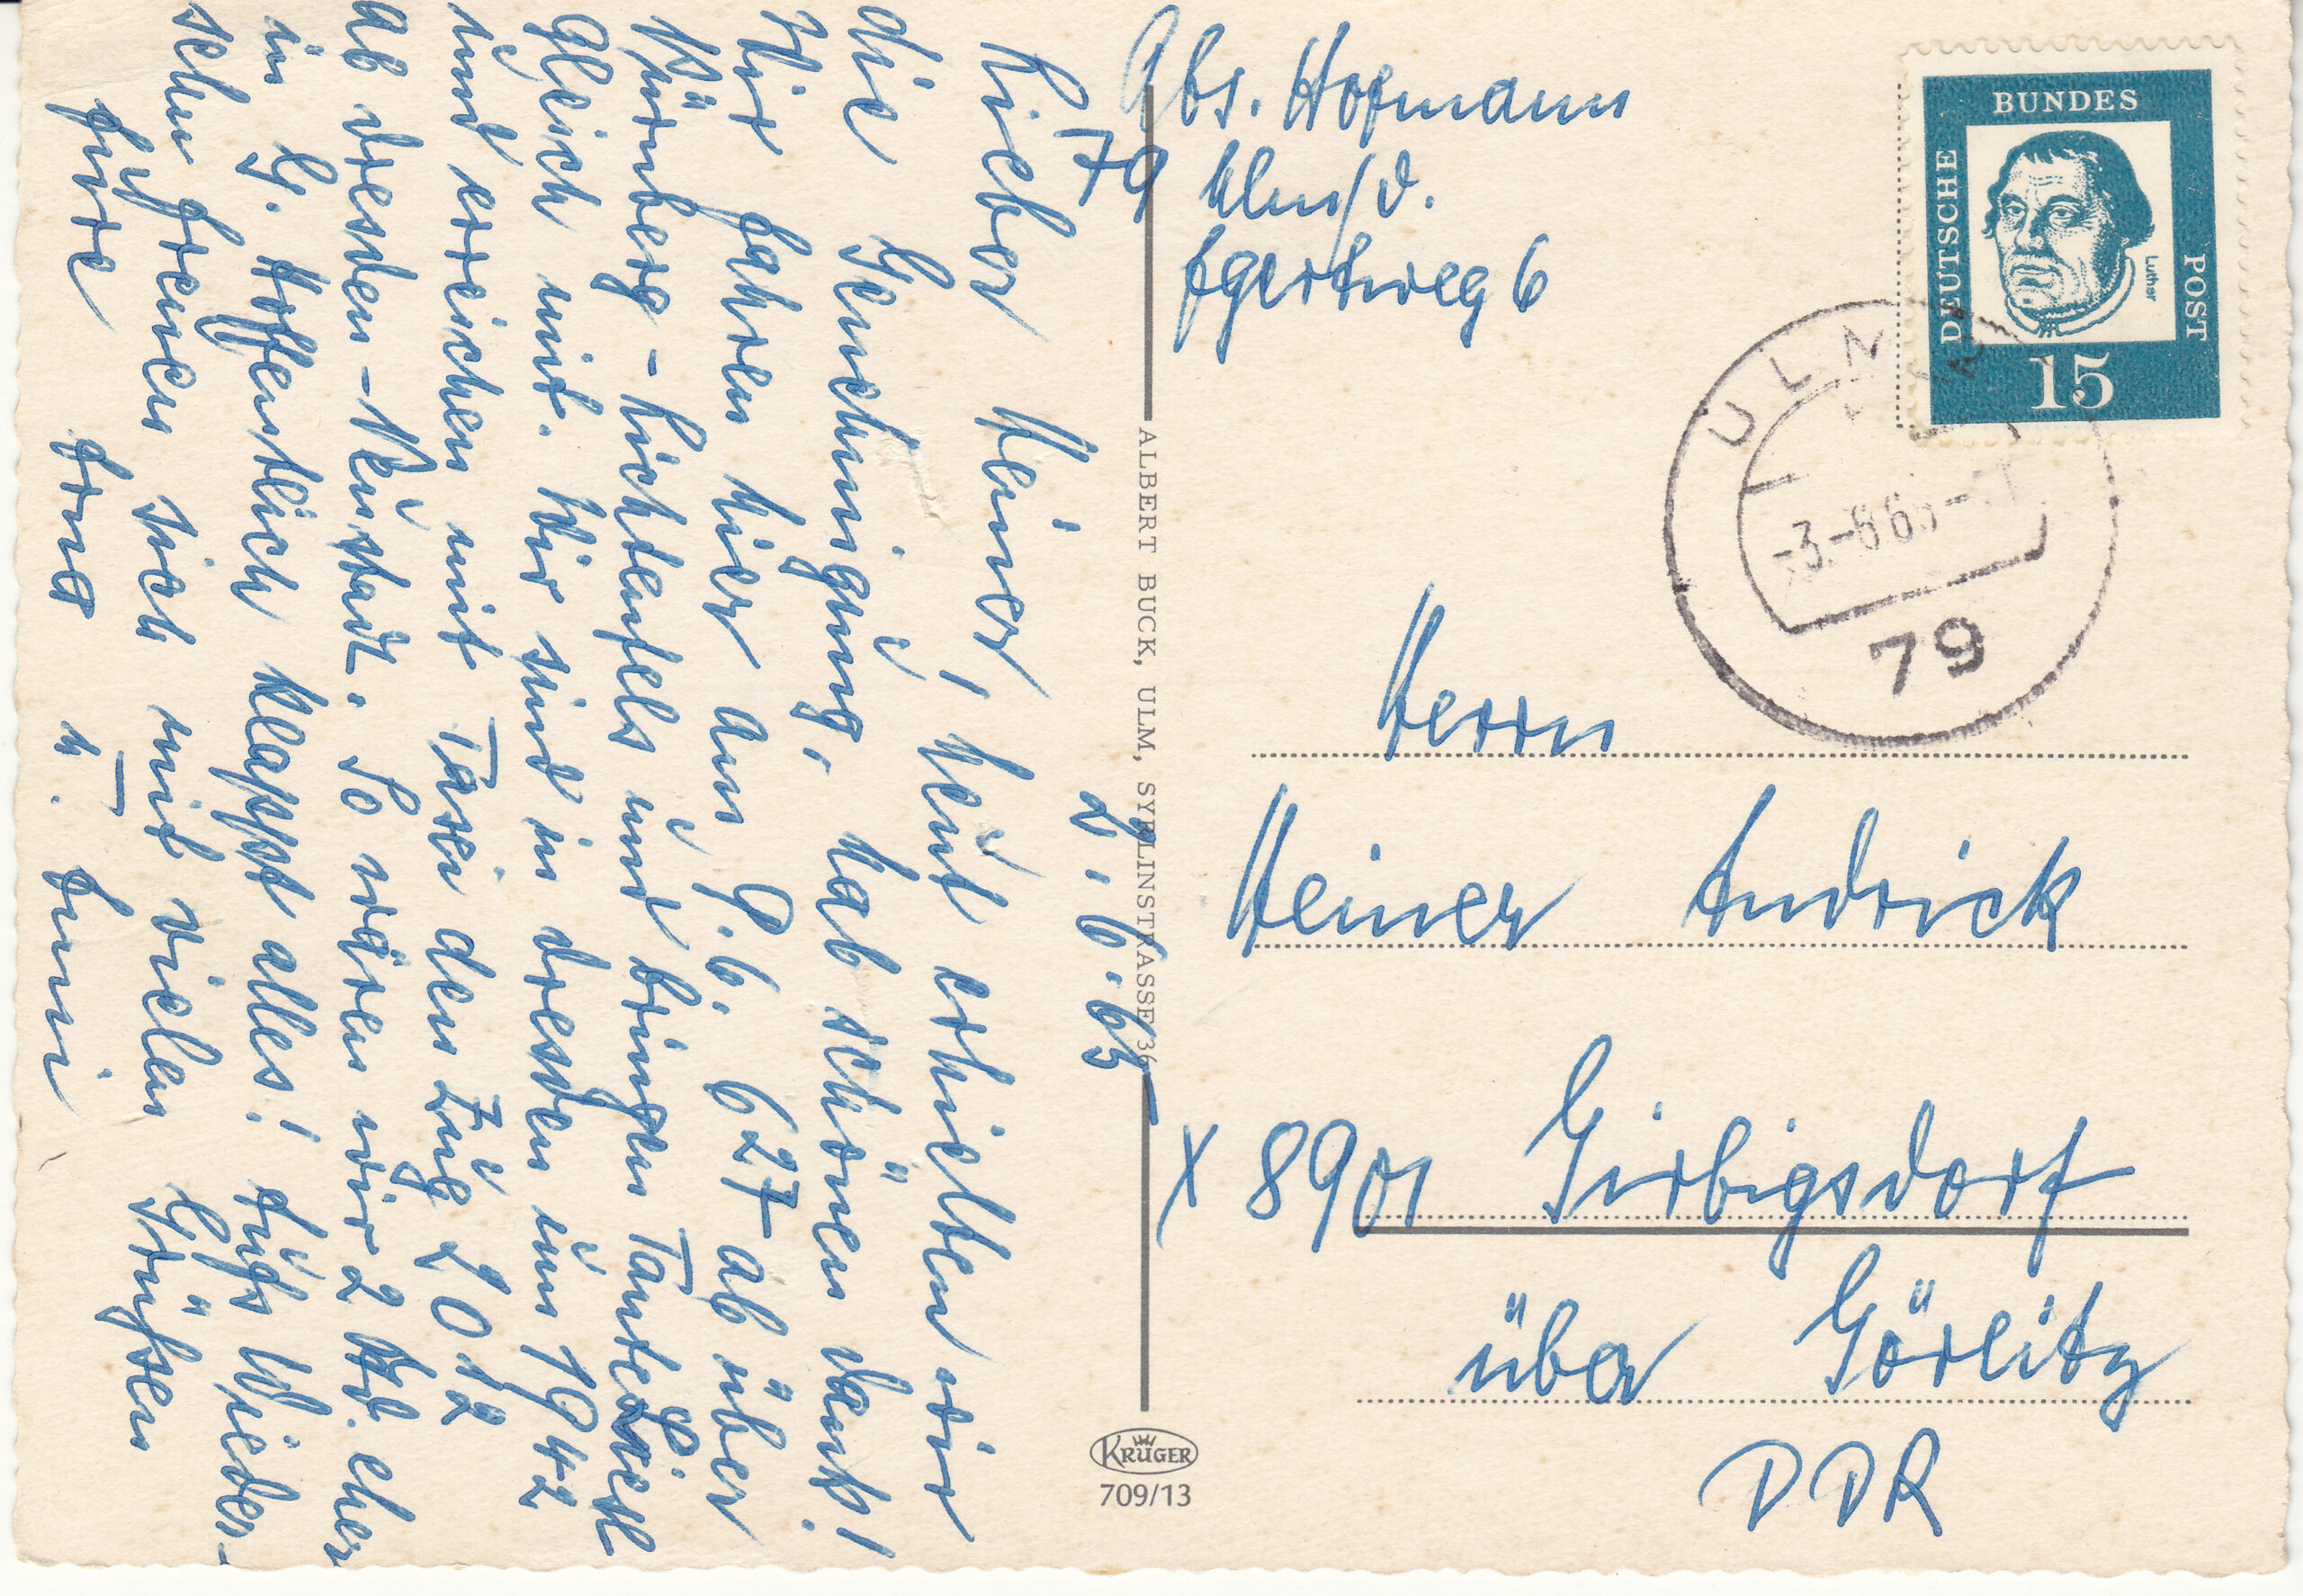 Abs. Hofmann
79 Ulm/D.
Egertweg 6
DEUTSCHE
BUNDES
POST
Luther
15
ULM
-3.-6.65-
79
2.6.65
Lieber Heiner, heut erhielten wir
die Genehmigung, hab schönen Dank!
Wir fahren hier am 9.6. 627 ab über
Nürnberg-Lichtenfels und bringen Tante Liesl
gleich mit. Wir sind in Dresden um 1942
und erreichen mit Taxi den Zug 2012
ab Dresden-Neustadt. So wären wir 2 Std. eher
in G. Hoffentlich klappt alles! Aufs Wieder-
sehn freuen sich mit vielen Grüßen
Eure Erna u. Emmi
Herrn
Heiner Andrick
X 8901 Girbigsdorf
über Görlitz
DDR
ALBERT BUCK, ULM, SYRLINSTRASSE 36
KRÜGER
709/13